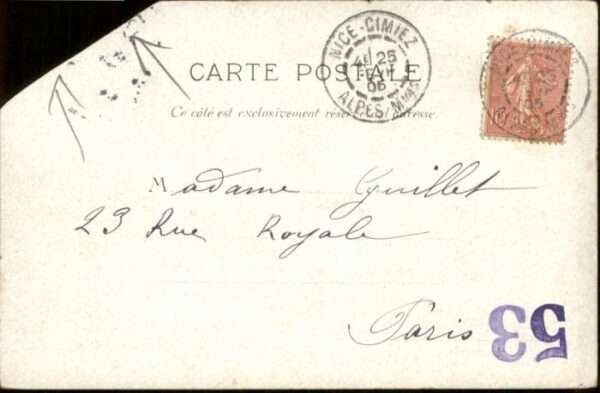 NICE-CIMIEZ
25
05
ALPES-MMES
CARTE POSTALE
Ce côté est exclusivement réservé adresse.
Madame Guillet
23 Rue Royale
Paris
53